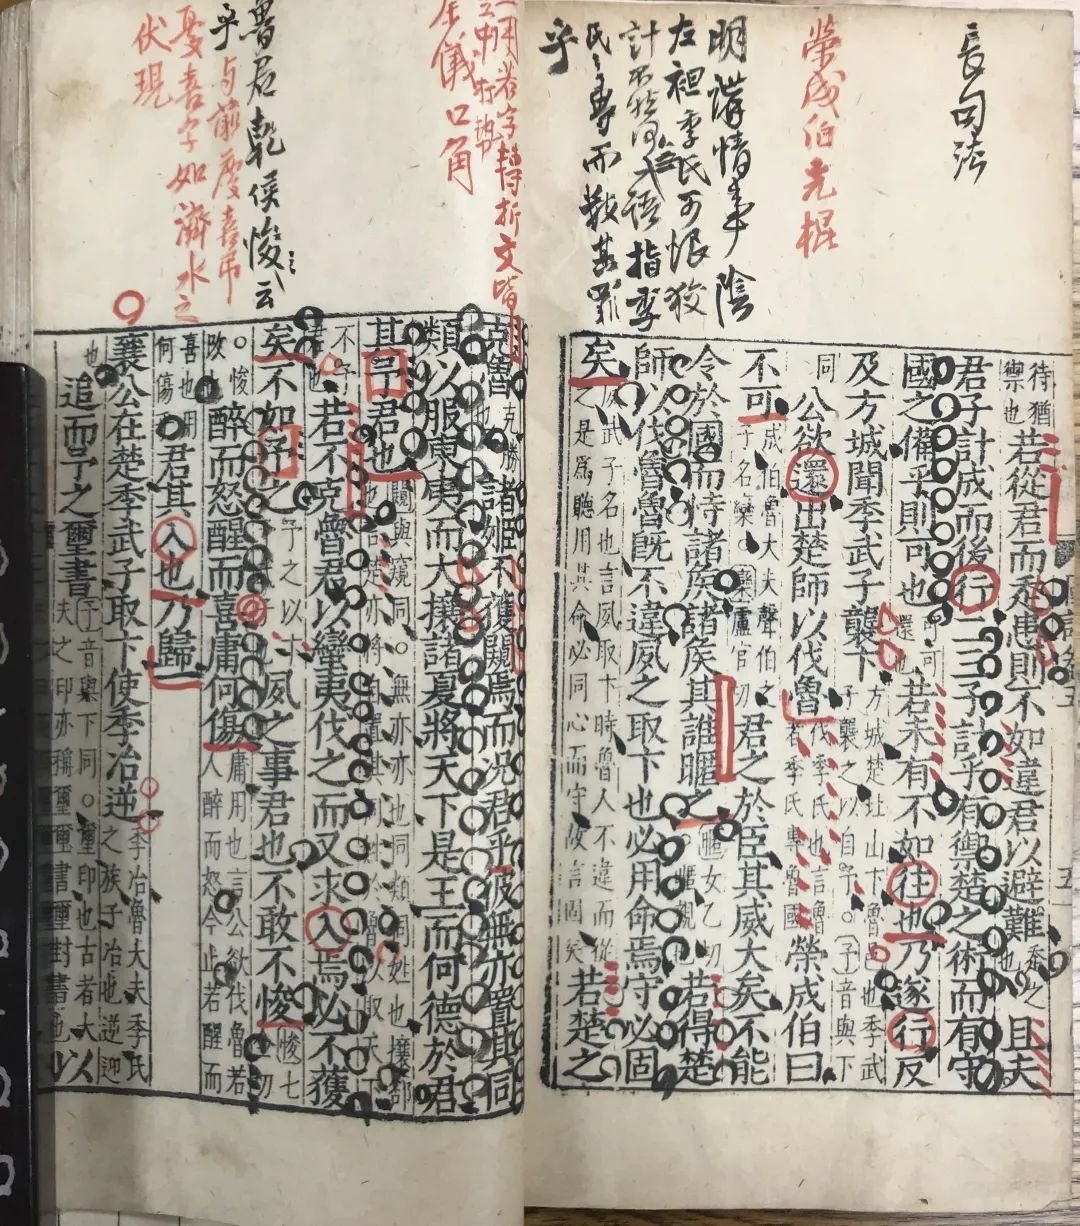 長句法
榮成伯光棍
明講情事陰
左袒季氏可恨狡
計不然何出語指季
氏之專而數其罪
乎
待猶禦也若從君而走患則不如違君以避難且夫
君子計成而後行二三子計乎有禦楚之術而有守
國之備乎則可也若未有不如往也乃遂行反
及方城聞季武子襲卞方城楚北山卞魯邑也季武子襲之以自予。予音與下
同公欲還出楚師以伐魯伐季氏也言魯者季氏專魯國榮成伯曰
不可成伯魯大夫聲伯之子名欒。欒盧官切君之於臣其威大矣不能
令於國而恃諸侯諸侯其誰暱之暱女乙切若得楚
師以伐魯魯既不違夙之取卞也必用命焉守必固
矣夙武子名也言夙取卞時魯人不違而從之是爲聽用其命必同心而守故言固矣若楚之
字轉折文皆
儀口角
魯君乾侯悛云
乎
与前慶喜弔
憂喜字如濟水之
伏現
克魯克勝也諸姬不獲闚焉而况君乎彼無亦置其同
類以服東夷而大攘諸夏將天下是王而何德於君
其予君也闚與窺同。無亦亦也同類同姓也攘郤
不予君也若不克魯君以蠻夷伐之而又求入焉必不獲
矣不如予之予之以卞也夙之事君也不敢不悛悛七全切
。悛改也醉而怒醒而喜庸何傷庸用也言公欲伐魯若人醉而怒今止若醒而
喜也用何傷乎君其入也乃歸
襄公在楚季武子取卞使季冶逆季冶魯大夫季氏之族子冶也逆迎
也追而予之璽書予音與下同。璽印也古者大夫之印亦稱璽璽書璽封書也以